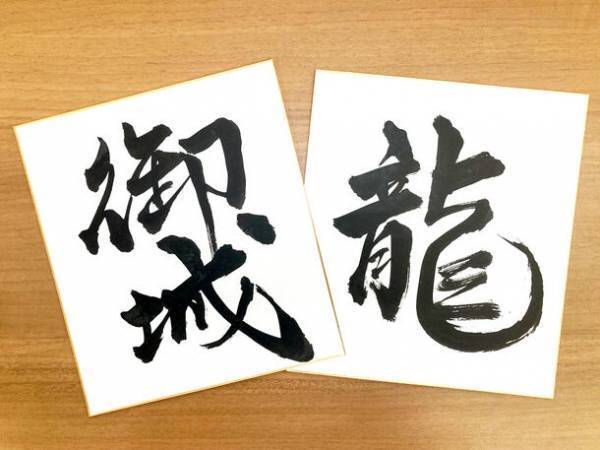 御城
龍